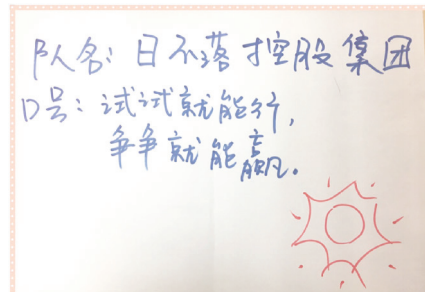 队名：日不落控股集团
口号：试试就能行，
争争就能赢。